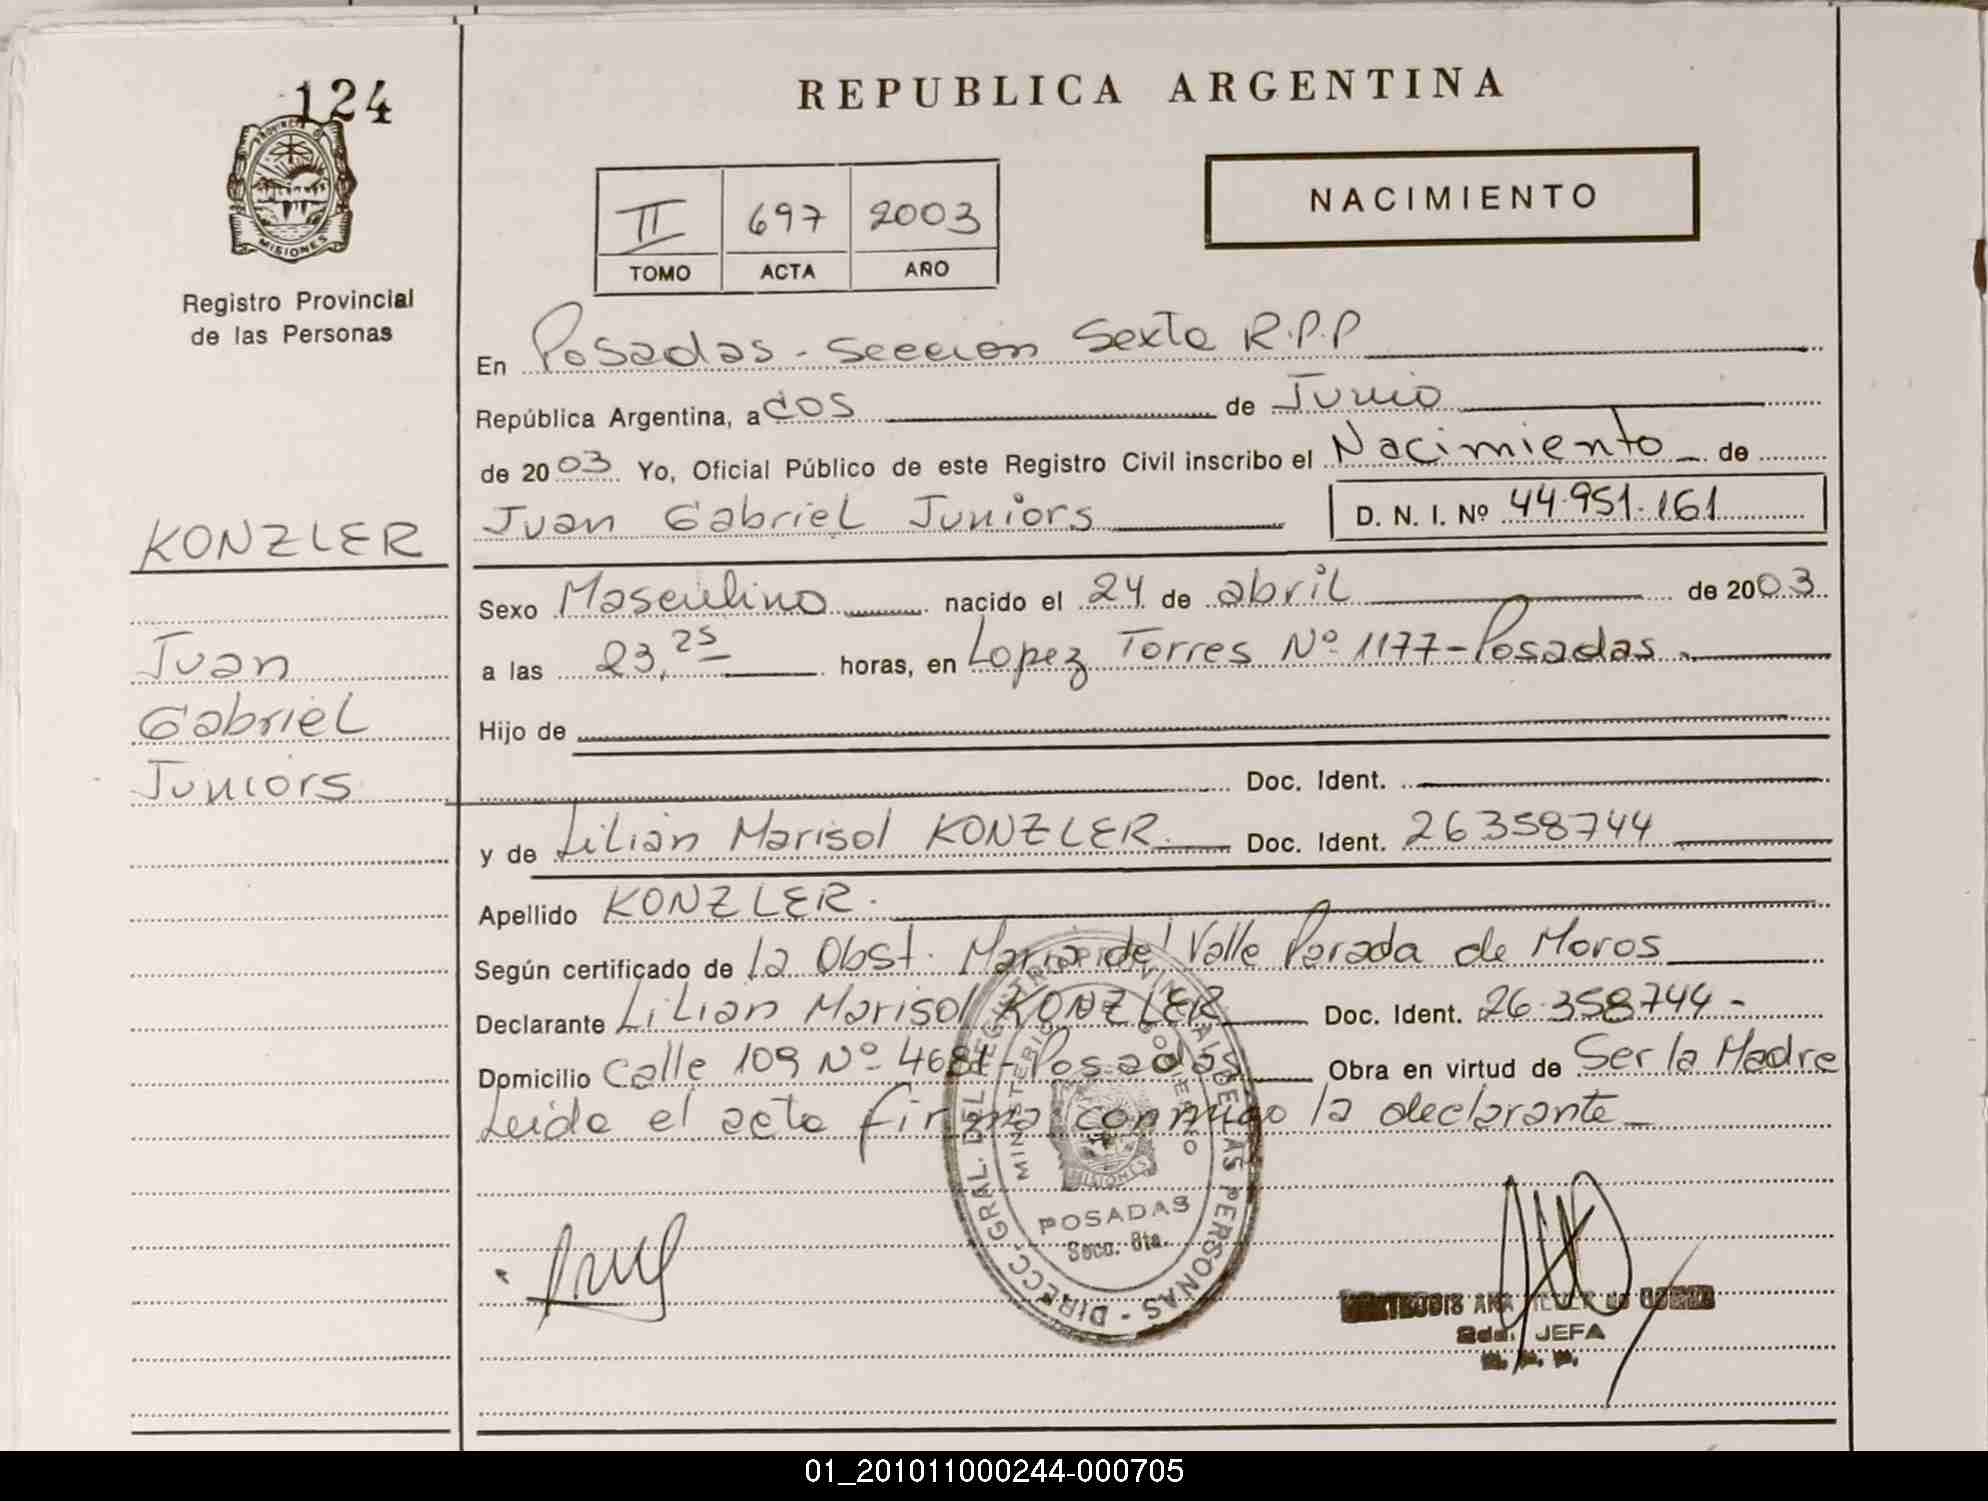 124
PROVINCIA DE
MISIONES
Registro Provincial
de las Personas
KONZLER
Juan
Gabriel
Juniors
REPUBLICA ARGENTINA
II 697 2003
TOMO ACTA AÑO
NACIMIENTO
En Posadas - Seccion Sexta R.P.P
República Argentina, a dos de Junio
de 2003 Yo, Oficial Público de este Registro Civil inscribo el Nacimiento de
Juan Gabriel Juniors D. N. I. Nº 44.951.161
Sexo Masculino nacido el 24 de abril de 2003
a las 23,25 horas, en Lopez Torres Nº 1177-Posadas
Hijo de
Doc. Ident.
y de Lilian Marisol KONZLER. Doc. Ident. 26358744
Apellido KONZLER.
Según certificado de la Obst. Maria del Valle Parada de Moros
Declarante Lilian Marisol KONZLER Doc. Ident. 26.358744-
Domicilio Calle 109 Nº Posadas Obra en virtud de Ser la Madre
Leida el acta firma conmigo la declarante
DIRECC. GRAL. DEL REGISTRO PROVINCIAL DE LAS PERSONAS -
MINISTERIO DE GOBIERNO
MISIONES
POSADAS
Secc. 6ta.
ANA
JEFA
01_201011000244-000705